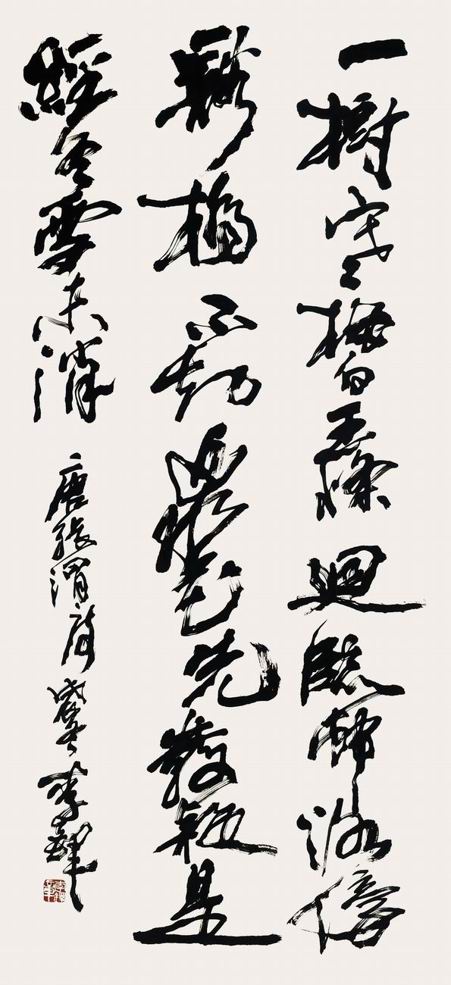 一樹寒梅白玉條迴臨邨路傍
谿橋不知近水花先發疑是
經冬雪未消
唐張謂詩 李鐸